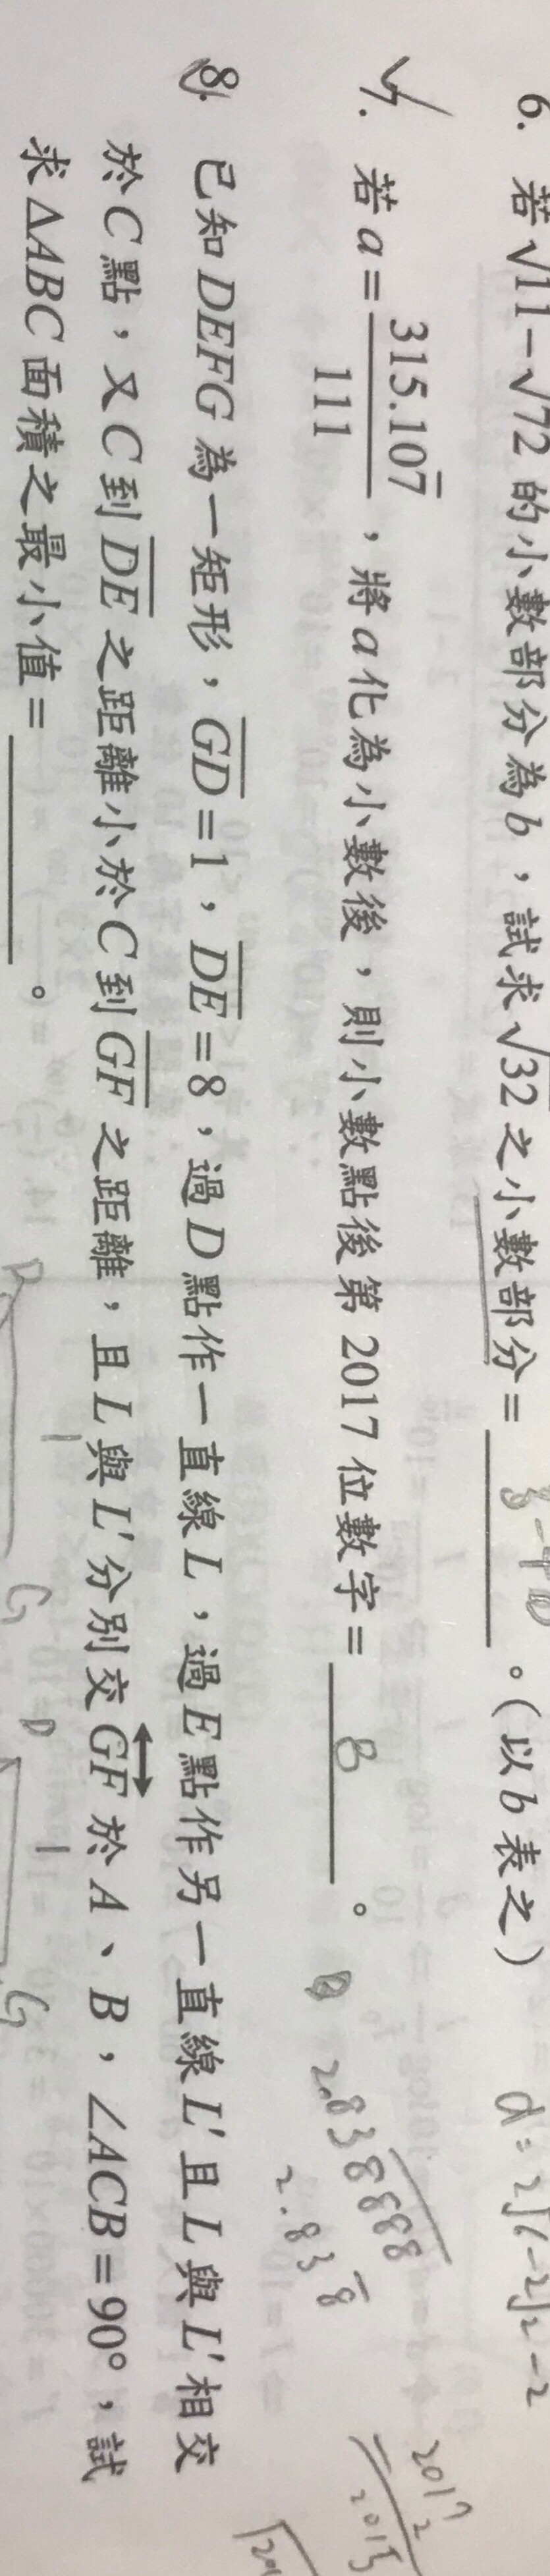 6. 若√11-√72 的小數部分為 b，試求√32 之小數部分= 。(以 b 表之)
7. 若 a = 315.10\overline{7} / 111，將 a 化為小數後，則小數點後第 2017 位數字= 8 。
2.838888
2.83\overline{8}
2017
2
2015
8. 已知 DEFG 為一矩形，\overline{GD}=1，\overline{DE}=8，過 D 點作一直線 L，過 E 點作另一直線 L′且 L 與 L′相交
於 C 點，又 C 到 \overline{DE} 之距離小於 C 到 \overline{GF} 之距離，且 L 與 L′分別交 \overleftrightarrow{GF} 於 A、B，∠ACB=90°，試
求 △ABC 面積之最小值= 。
D
1
G
D
1
G